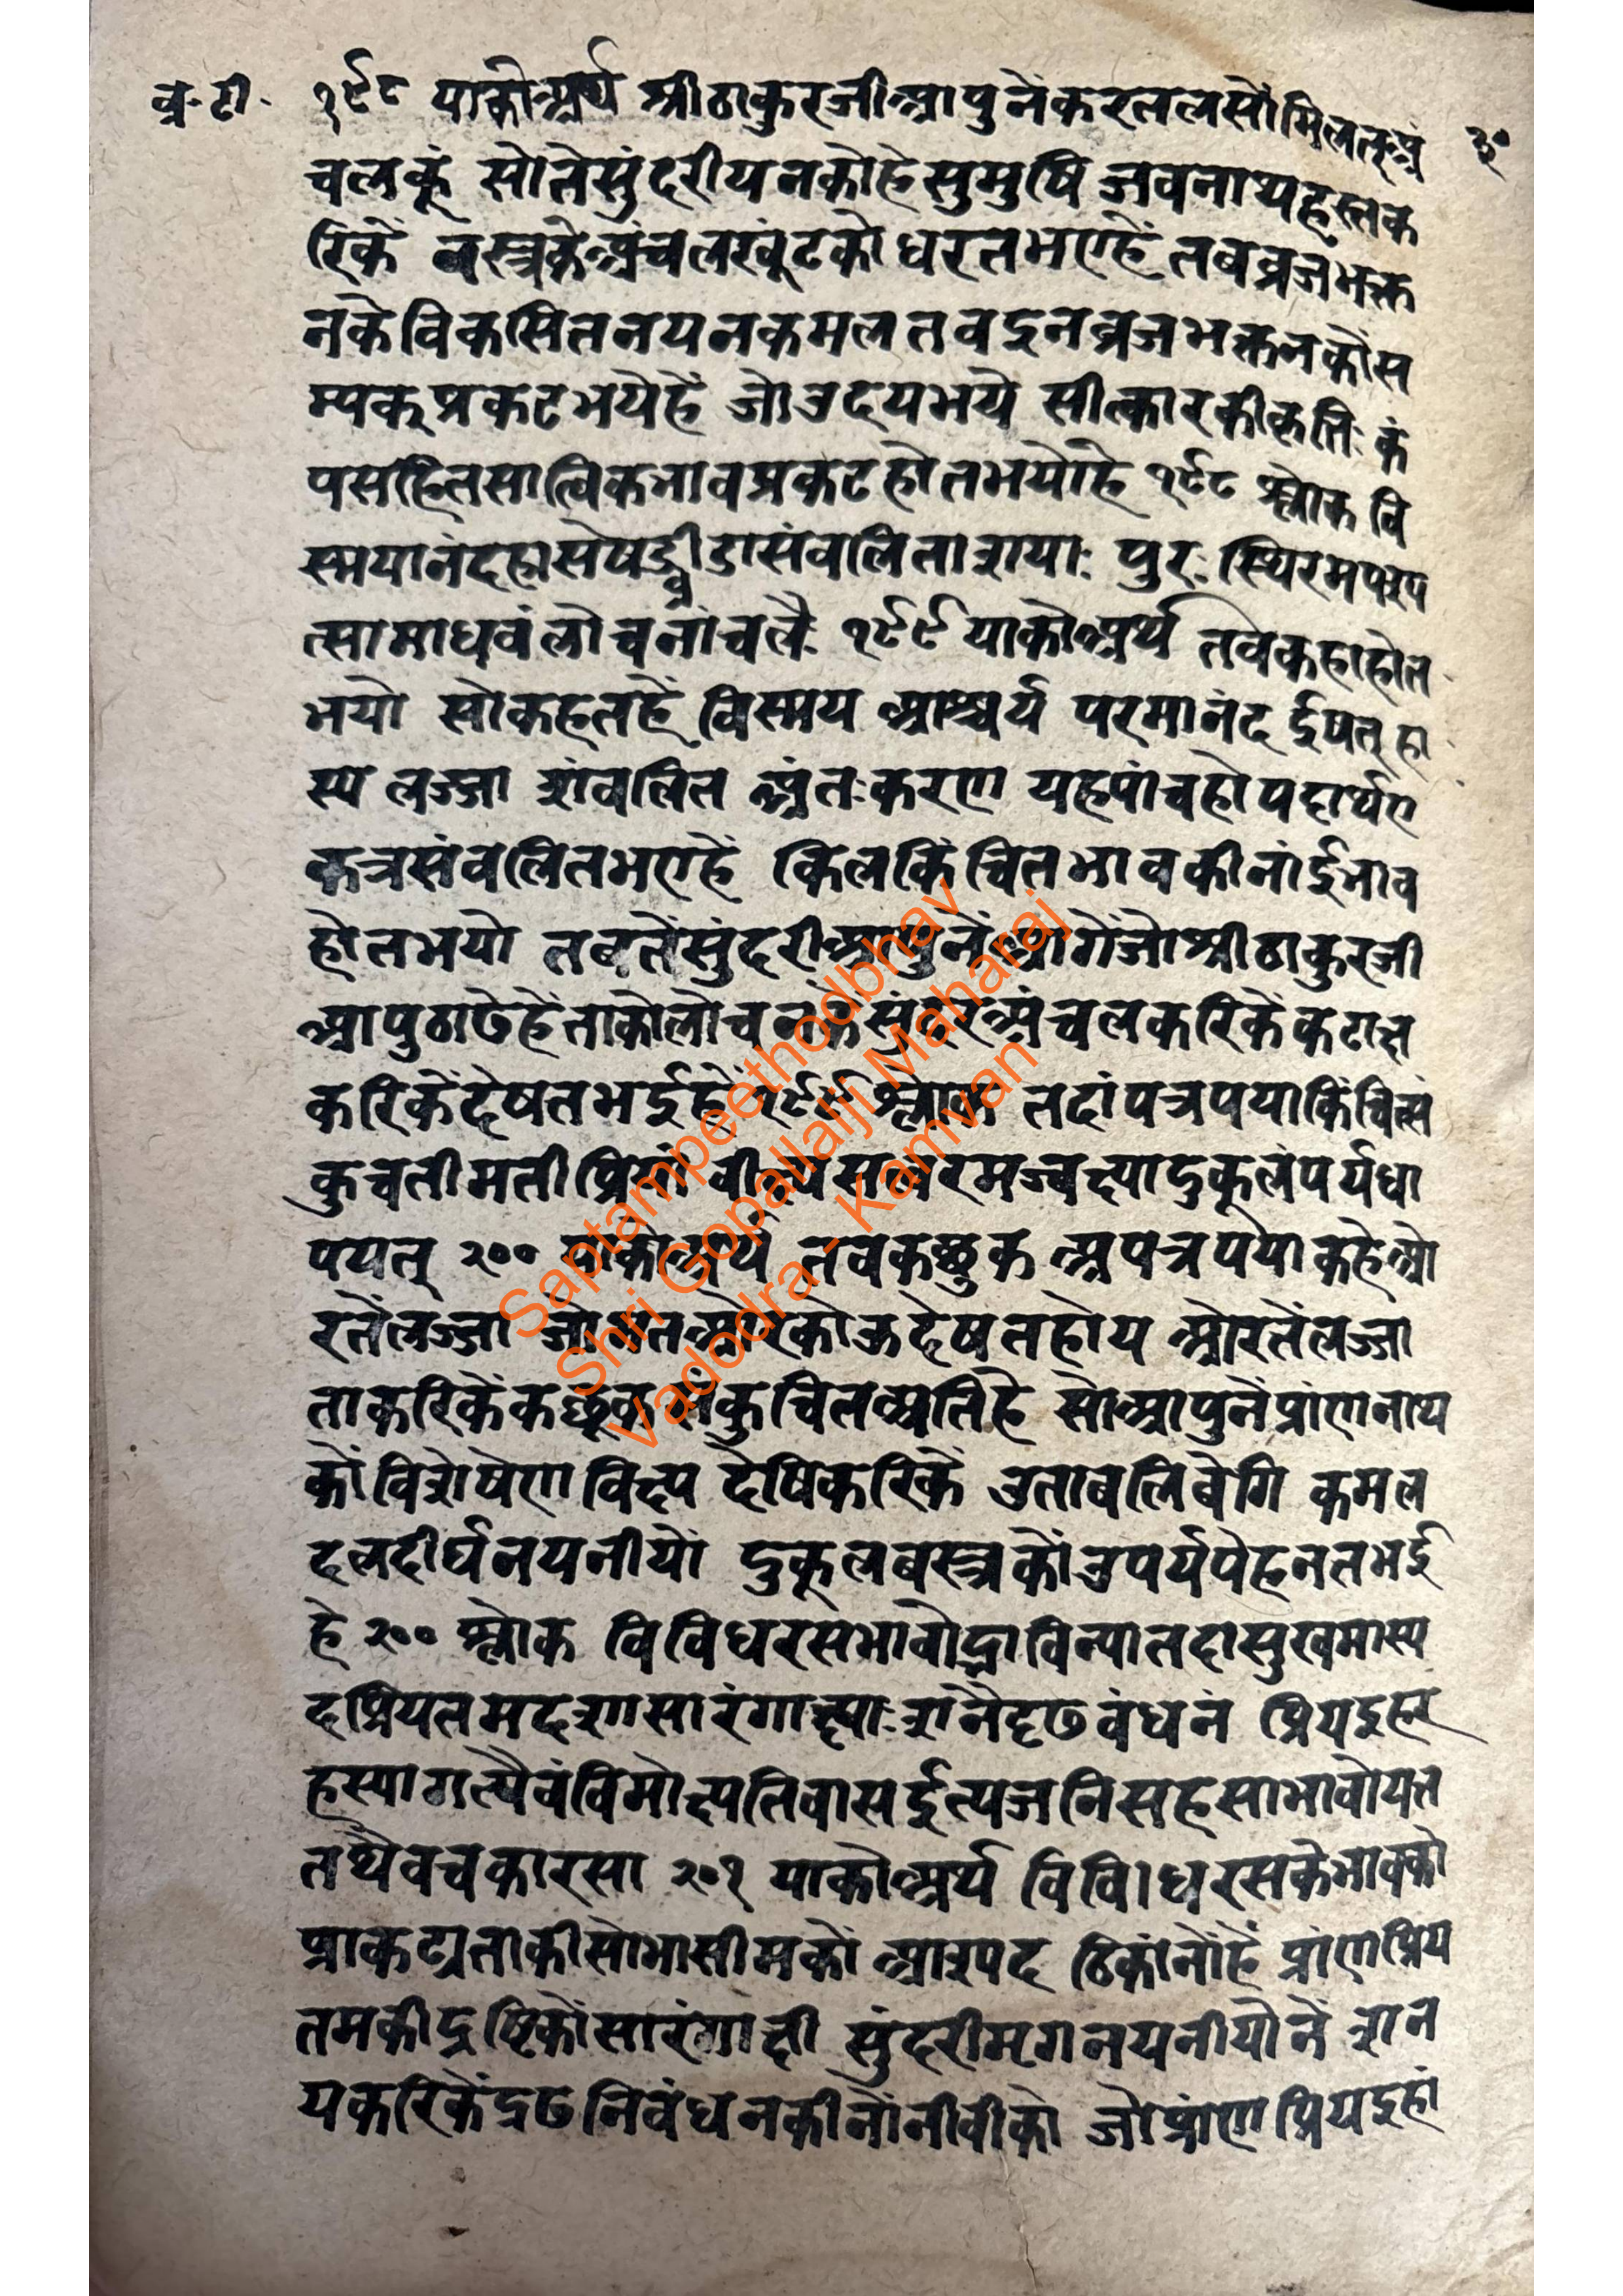 व्र॰ टी॰ १९८ याकोअर्थ श्रीठाकुरजीआपुनेंकरतलसोंमिलतअं ३०
चलकूं सोतेसुंदरीयनकोहेसुमुषि जवनाथहस्तक
रिकें वस्त्रकेअंचलखुंटकों धरतभएहें तबव्रजभक्त
नकेविकसितनयनकमल तवइनव्रजभक्तनकोंस
म्यक्प्रकटभयेहें जोउदयभये सीत्कारकीकृतिः कं
पसहितसात्विकभावप्रकटहोतभयोहे १९८ श्लोक वि
स्मयानंदहासेषद्व्रीडासंवलिताशयाः पुरः स्थिरमपश्य
त्सामाधवंलोचनांचलैः १९९ याकोअर्थ तवकहाहोत
भयो सोकहतहें विस्मय आश्चर्य परमानंद ईषत् हा
स्य लज्जा शंवलित अंतःकरण यहपांचहोपदार्थए
कत्रसंवलितभएहें किलकिंचितभावकीनांईभाव
होतभयो तवतेंसुंदरीआपुनेंआगेंजोश्रीठाकुरजी
आपुठाढेहेंताकोलोचनकेंसुंदरअंचलकरिकेंकटाक्ष
करिकेंदेषतभईहें १९९ श्लोक तदांपत्रपयाकिंचित्सं
कुचतीमतीप्रियं वीक्ष्यसत्वरमज्वक्ष्यादुकूलंपर्यधा
पयत् २०० याकोअर्थ तवकछुक अपत्रपयाकहेओ
रतेंलज्जा जोअतओरकोऊदेषतहोय ओरतेंलज्जा
ताकरिकेंकछूकसंकुचितअतिहे सोआपुनेंप्रांणनाथ
कों विशेषेणविक्ष्य देषिकरिकें उतावलिबेगि कमल
दलदीर्घनयनीयों दुकूलबस्त्रकोंउपर्यपेहनतभई
हे २०० श्लोक विविधरसभावोद्राविन्यातदासुखमास्य
दप्रियतमदृशासारंगाक्ष्याःशनैदृढबंधनं प्रियइहर
हस्यागत्यैवंविमोक्ष्यतिवासईत्यजनिसहसाभावोयत्त
तथैवचकारसा २०१ याकोअर्थ विविधरसकेभावको
प्राकट्यताकीसोभासीमकों आस्पद ठिकांनोंहें प्रांणप्रिय
तमकीद्रष्टिकोंसारंगाक्षी सुंदरीमृगनयनीयोनें शन
यकरिकेंद्रढनिबंधनकीनोंनीवीको जोप्रांणप्रियइहां